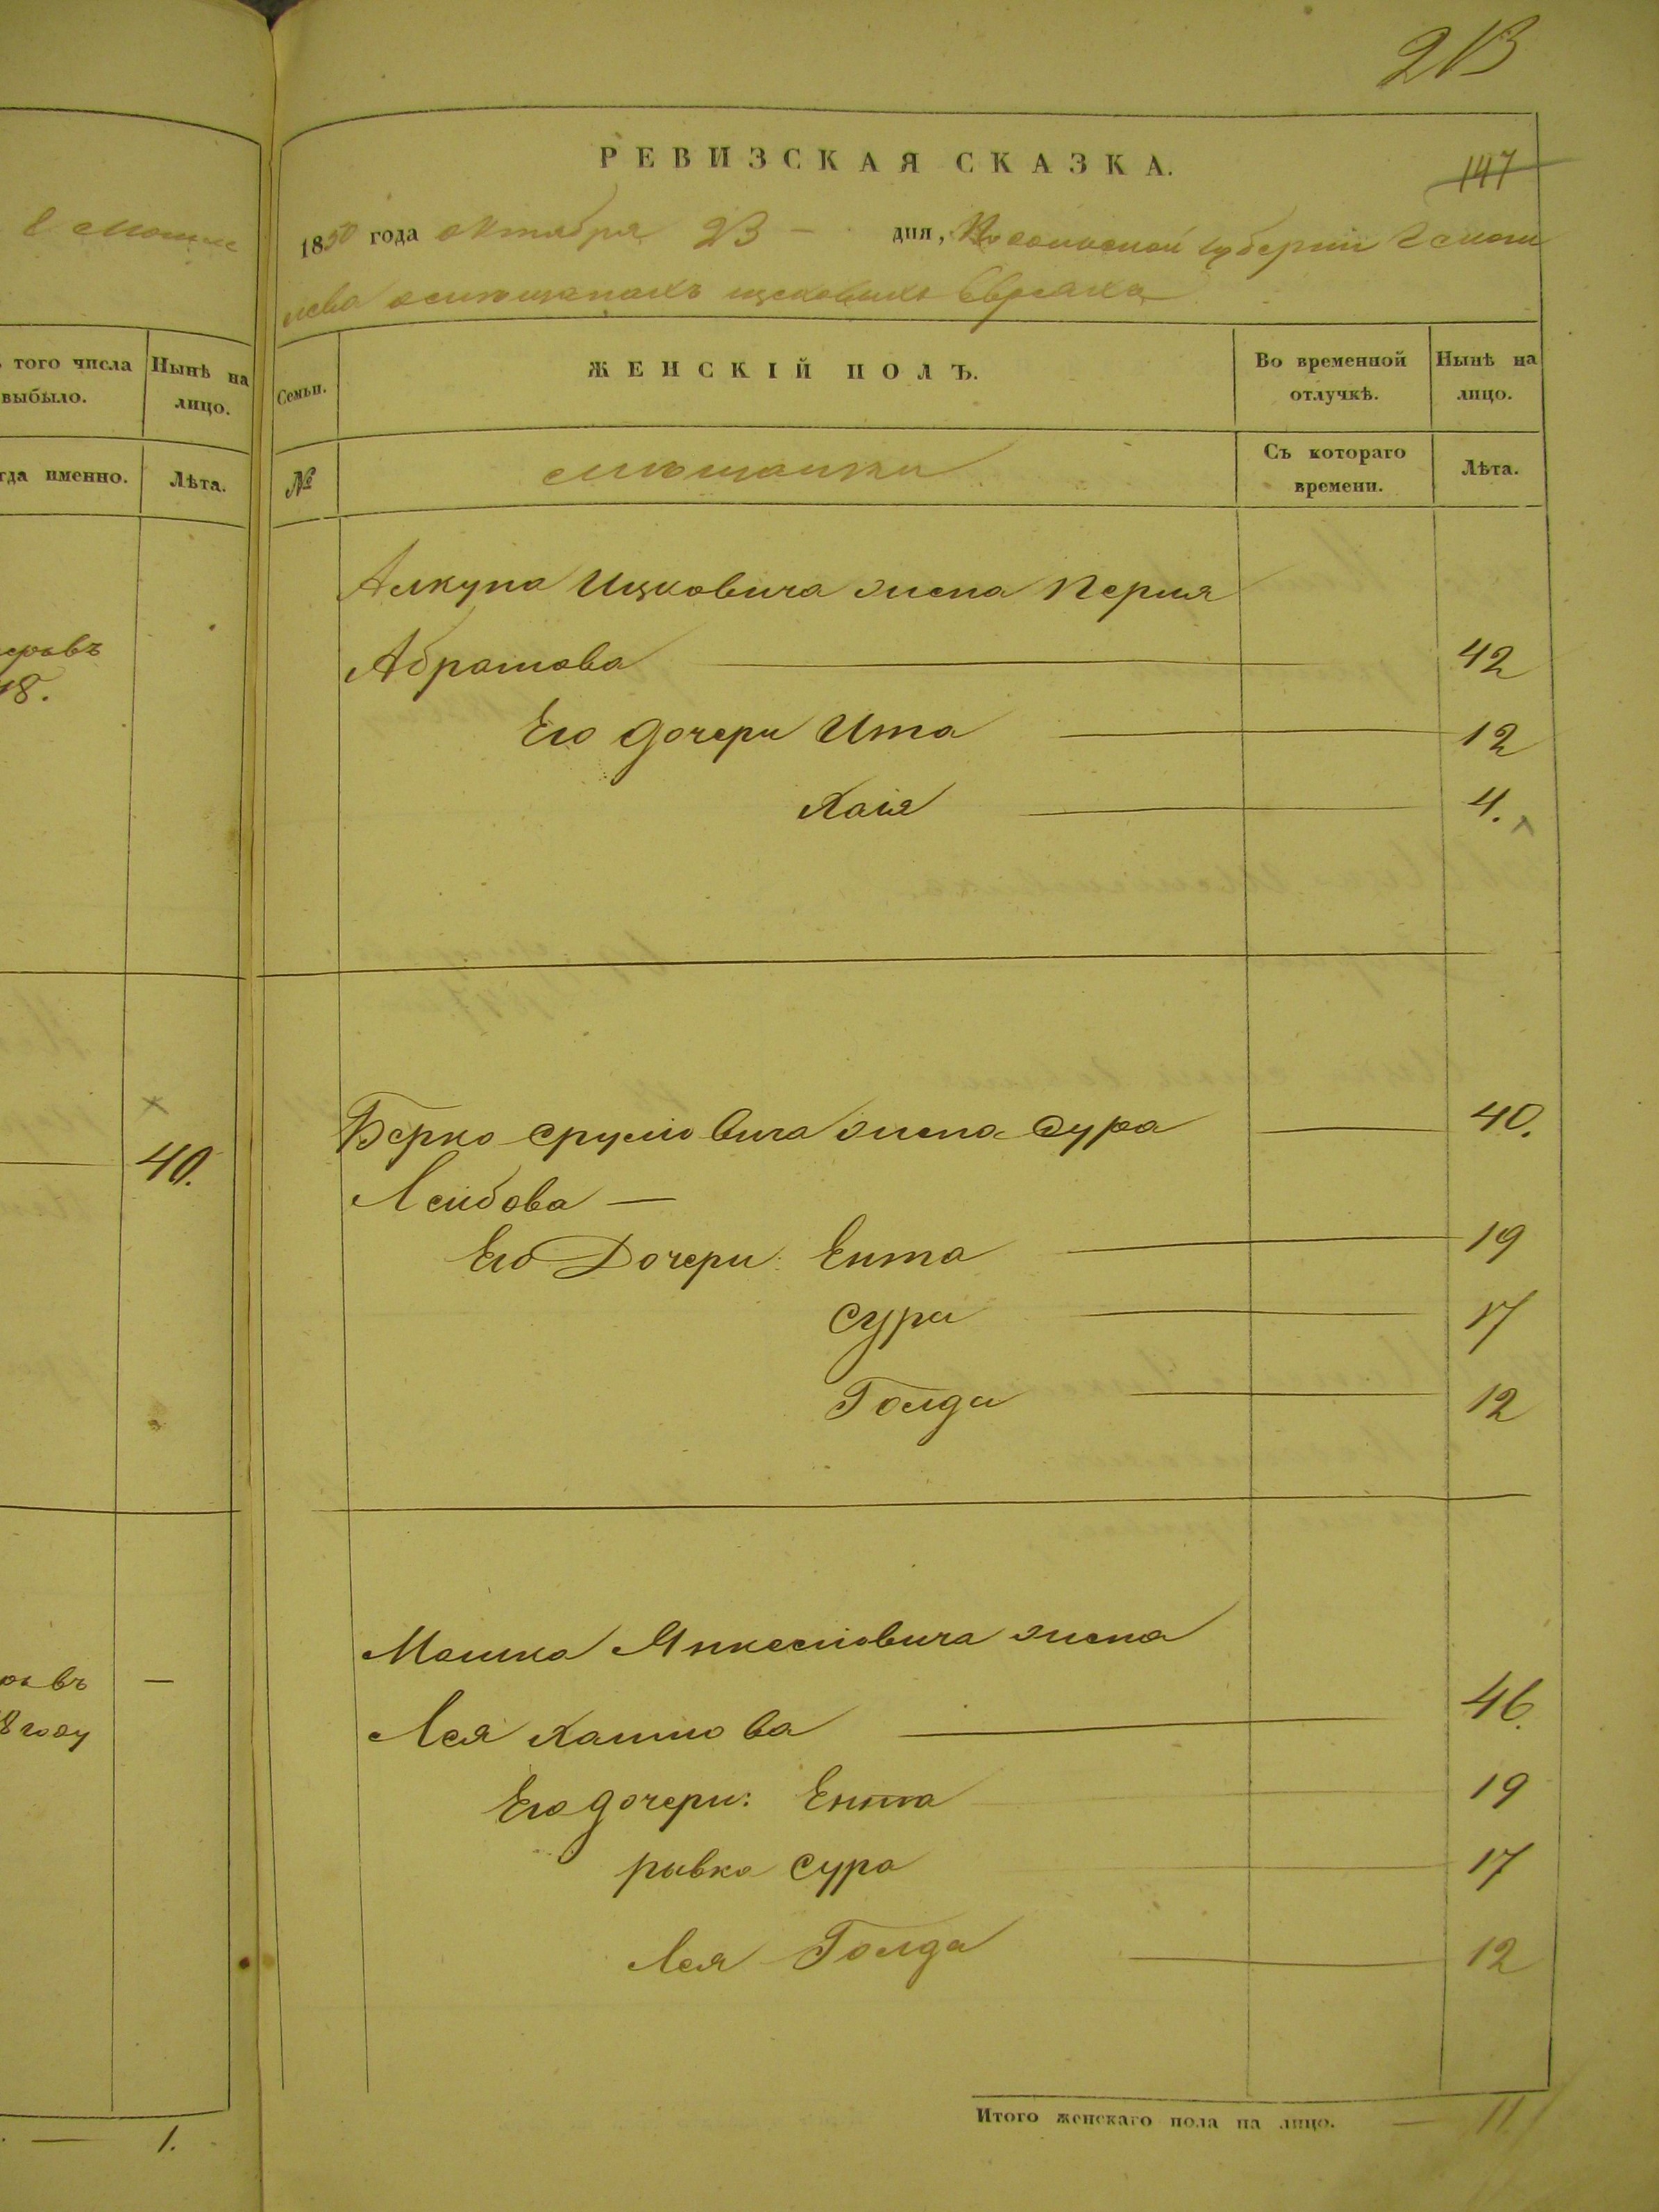 213
РЕВИЗСКАЯ СКАЗКА.
147
1850 года октября 23 — дня, губернии
Евреяхъ
того числа выбыло.
Нынѣ на лицо.
гда именно.
Лѣта.
Семьи.
ЖЕНСКІЙ ПОЛЪ.
Во временной отлучкѣ.
Нынѣ на лицо.
№
мѣщанки
Съ котораго времени.
Лѣта.
Ицковича жена Перля
Абрамова — 42
Его дочери Ита — 12
Хаія — 4.
18.
Берко Срулювича жена Сура — 40.
40.
Лейбова —
Его Дочери: Ента — 19
Сура — 17
Голда — 12
Мошка Янкелювича жена
Лея Хаимова — 46.
8 году
Его дочери: Ента 19
рывка Сура 17
Лея Голда — 12
Итого женскаго пола на лицо. — 11
— 1.